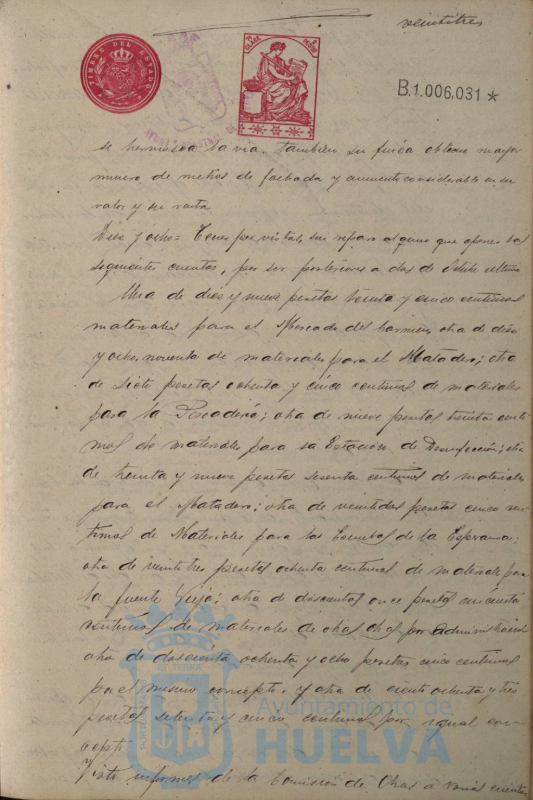 veintitres
TIMBRE DEL ESTADO
B.1.006.031 *
se hermosea la via, tambien su finca obtiene mayor
numero de metros de fachada y aumento considerable en su
valor y su renta
Diez y ocho = Tener por vistas, sin reparo alguno que oponer las
siguientes cuentas, por ser posteriores a dos de Octubre último
Una de diez y nueve pesetas treinta y cinco centimos
materiales para el Mercado del Carmen, otra de diez
y ocho, noventa de materiales para el Matadero; otra
de siete pesetas ochenta y cinco centimos de materiales
para la Pescadería; otra de nueve pesetas treinta centi-
mos de materiales para la Estación de Desinfección; otra
de treinta y nueve pesetas sesenta centimos de materiales
para el Matadero; otra de veintidos pesetas cinco cen-
timos de Materiales para las Escuelas de la Esperanza;
otra de veintitres pesetas ochenta centimos de materiales para
la fuente Vieja; otra de doscientos once pesetas cincuenta
centimos de materiales de otras obras por administración
otra de doscienta ochenta y ocho pesetas cinco centimos
por el mismo concepto, y otra de ciento ochenta y tres
pesetas setenta y cinco centimos por igual con-
cepto.
Visto informes de la Comisión de Obras á varias cuentas
Ayuntamiento de
HUELVA